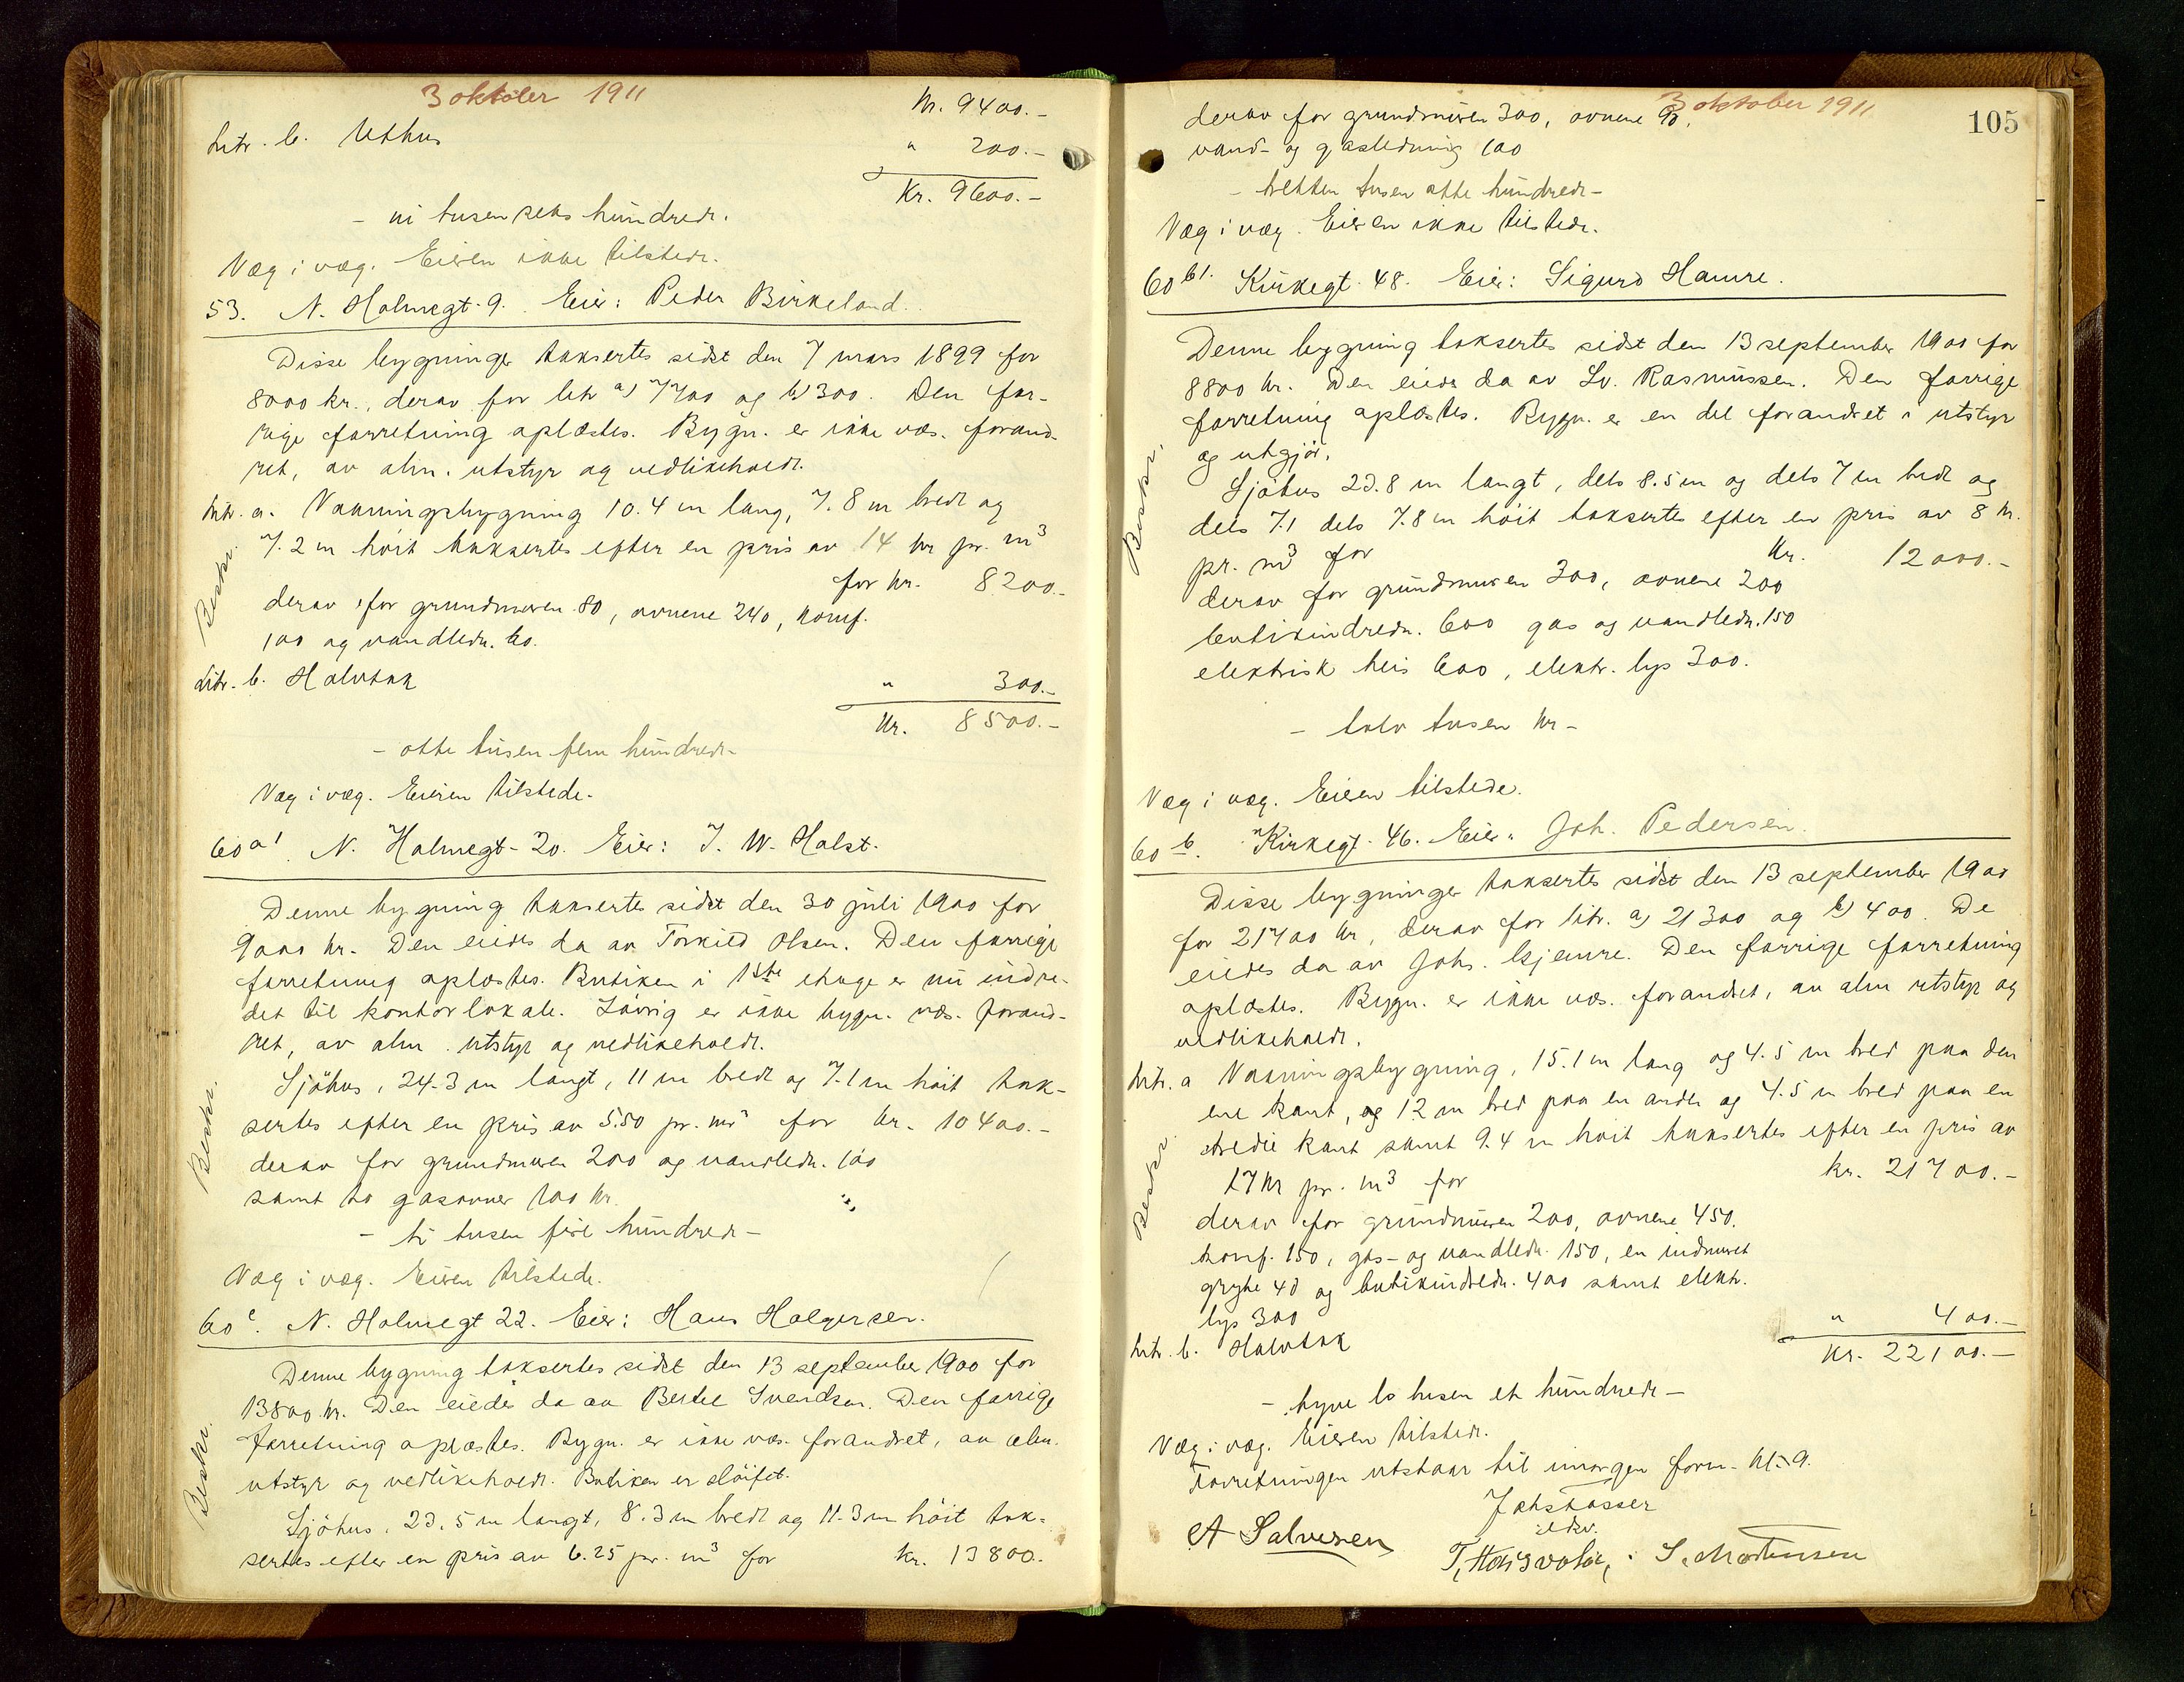 3 oktober 1911
Kr. 9400.-
Litr. b. Uthus " 200.-
Kr. 9600.-
- ni tusen seks hundrede.
Væg i væg. Eieren ikke tilstede.
53. N. Holmegt. 9. Eier: Peder Birkeland.
Disse bygninger taksertes sidst den 7 mars 1899 for
8000 kr., derav for litr a) 7700 og b) 300. Den for-
rige forretning oplæstes. Bygn. er ikke væs. forand-
ret, av alm. utstyr og vedlikeholdt.
Litr. a. Vaaningsbygning 10.4 m lang, 7.8 m bred og
7.2 m høit taksertes efter en pris av 14 kr pr. m³
Beskr.
for kr. 8200.-
derav for grundmuren 80, ovnene 240, komf.
100 og vandledn. 60.
Litr. b. Halvtak " 300.-
Kr. 8500.-
- otte tusen fem hundrede -
Væg i væg. Eieren tilstede.
60a1. N. Holmegt. 20. Eier: J. W. Holst.
Denne bygning taksertes sidst den 30 juli 1900 for
9000 kr. Den eiedes da av Torkild Olsen. Den forrige
forretning oplæstes. Butiken i 1ste etage er nu indre-
det til kontorlokale. Iøvrig er ikke bygn. væs. forand-
ret, av alm. utstyr og vedlikeholdt.
Sjøhus, 24.3 m langt, 11 m bredt og 7.1 m høit tak-
sertes efter en pris av 5.50 pr. m³ for kr. 10400.-
Beskr.
derav for grundmuren 200 og vandledn. 100
samt to gasovner 100 kr.
- ti tusen fire hundrede -
Væg i væg. Eieren tilstede.
60c. N. Holmegt 22. Eier: Hans Holgersen.
Denne bygning taksertes sidst den 13 september 1900 for
13800 kr. Den eiedes da av Bertel Svendsen. Den forrige
forretning oplæstes. Bygn. er ikke væs. forandret, av alm.
utstyr og vedlikeholdt. Butiken er sløifet.
Beskr.
Sjøhus, 23.5 m langt, 8.3 m bredt og 11.3 m høit tak-
sertes efter en pris av 6.25 pr. m³ for kr. 13800.-
3 oktober 1911
105
derav for grundmuren 300, ovnene 90,
vand- og gasledning 100
- tretten tusen otte hundrede -
Væg i væg. Eieren ikke tilstede.
60b1. Kirkegt. 48. Eier: Sigurd Hamre.
Denne bygning taksertes sidst den 13 september 1900 for
8800 kr. Den eiedes da av Lv. Rasmussen. Den forrige
forretning oplæstes. Bygn. er en del forandret i utstyr
og utgjør.
Beskr.
Sjøhus 23.8 m langt, dels 8.5 m og dels 7 m bredt og
dels 7.1 dels 7.8 m høit taksertes efter en pris av 8 kr.
pr. m³ for Kr. 12000.-
derav for grundmuren 300, ovnene 200
butikindredn. 600 gas og vandledn. 150
elektrisk heis 600, elektr. lys 300.
- tolv tusen kr -
Væg i væg. Eieren tilstede.
60b. Kirkegt. 46. Eier: Joh. Pedersen.
Disse bygninger taksertes sidst den 13 september 1900
for 21700 kr, derav for litr. a) 21300 og b) 400. De
eiedes da av Johs. Gjemre. Den forrige forretning
oplæstes. Bygn. er ikke væs. forandret, av alm utstyr og
vedlikeholdt.
Litr. a Vaaningsbygning, 15.1 m lang og 4.5 m bred paa den
ene kant, og 12 m bred paa en anden og 4.5 m bred paa en
tredie kant samt 9.4 m høit taksertes efter en pris av
17 kr pr. m³ for kr. 21700.-
Beskr.
derav for grundmuren 200, ovnene 450,
komf. 150, gas- og vandledn. 150, en indmuret
gryte 40 og butikindredn. 400 samt elektr.
lys 300
Litr. b. Halvtak " 400.-
Kr. 22100.-
- tyve to tusen et hundrede -
Væg i væg. Eieren tilstede.
Forretningen utstaar til imorgen form. kl. 9.
A Salvesen
S. Mortensen